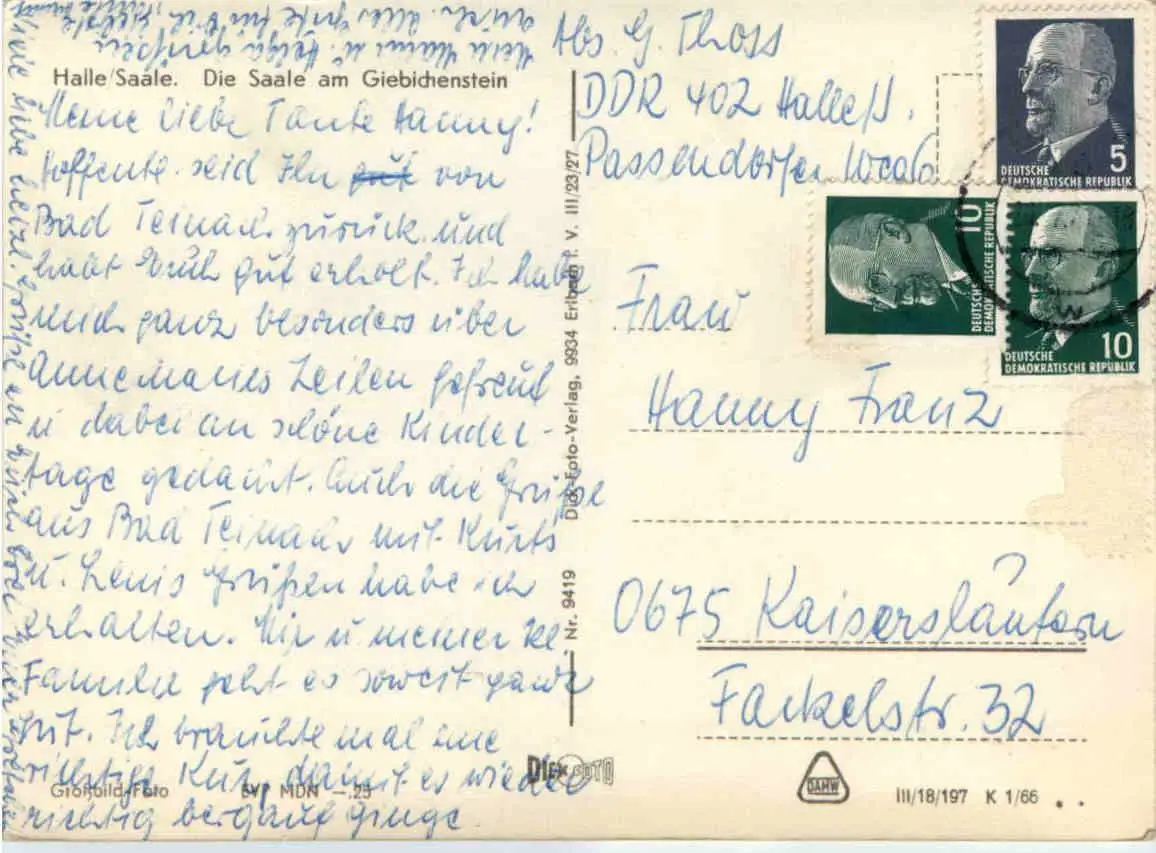 Halle/Saale. Die Saale am Giebichenstein
Meine liebe Tante Hanny!
Hoffentl. seid Ihr gut von
Bad Teinach zurück und
habt Euch gut erholt. Ich habe
mich ganz besonders über
Annemaries Zeilen gefreut
u dabei an schöne Kinder-
tage gedacht. Auch die Grüße
aus Bad Teinach mit Kurts
u. Lenis Grüßen habe ich
erhalten. Mir u meiner kl
Familie geht es soweit ganz
gut. Ich brauchte mal eine
richtige Kur, damit es wieder
richtig bergauf ginge.
Viele liebe herzl. Grüße an Euch
Großbild-Foto EVP MDN -.25
Nr. 9419 Dick-Foto-Verlag, 9934 Erlbach i. V. III/23/27
Abs. G. Thoss
DDR 402 Halle/S.
Passendorfer
5
DEUTSCHE
DEMOKRATISCHE REPUBLIK
10
DEUTSCHE
DEMOKRATISCHE REPUBLIK
10
DEUTSCHE
DEMOKRATISCHE REPUBLIK
Frau
Hanny Franz
0675 Kaiserslautern
Fackelstr. 32
DICK FOTO
DAHW
III/18/197 K 1/66